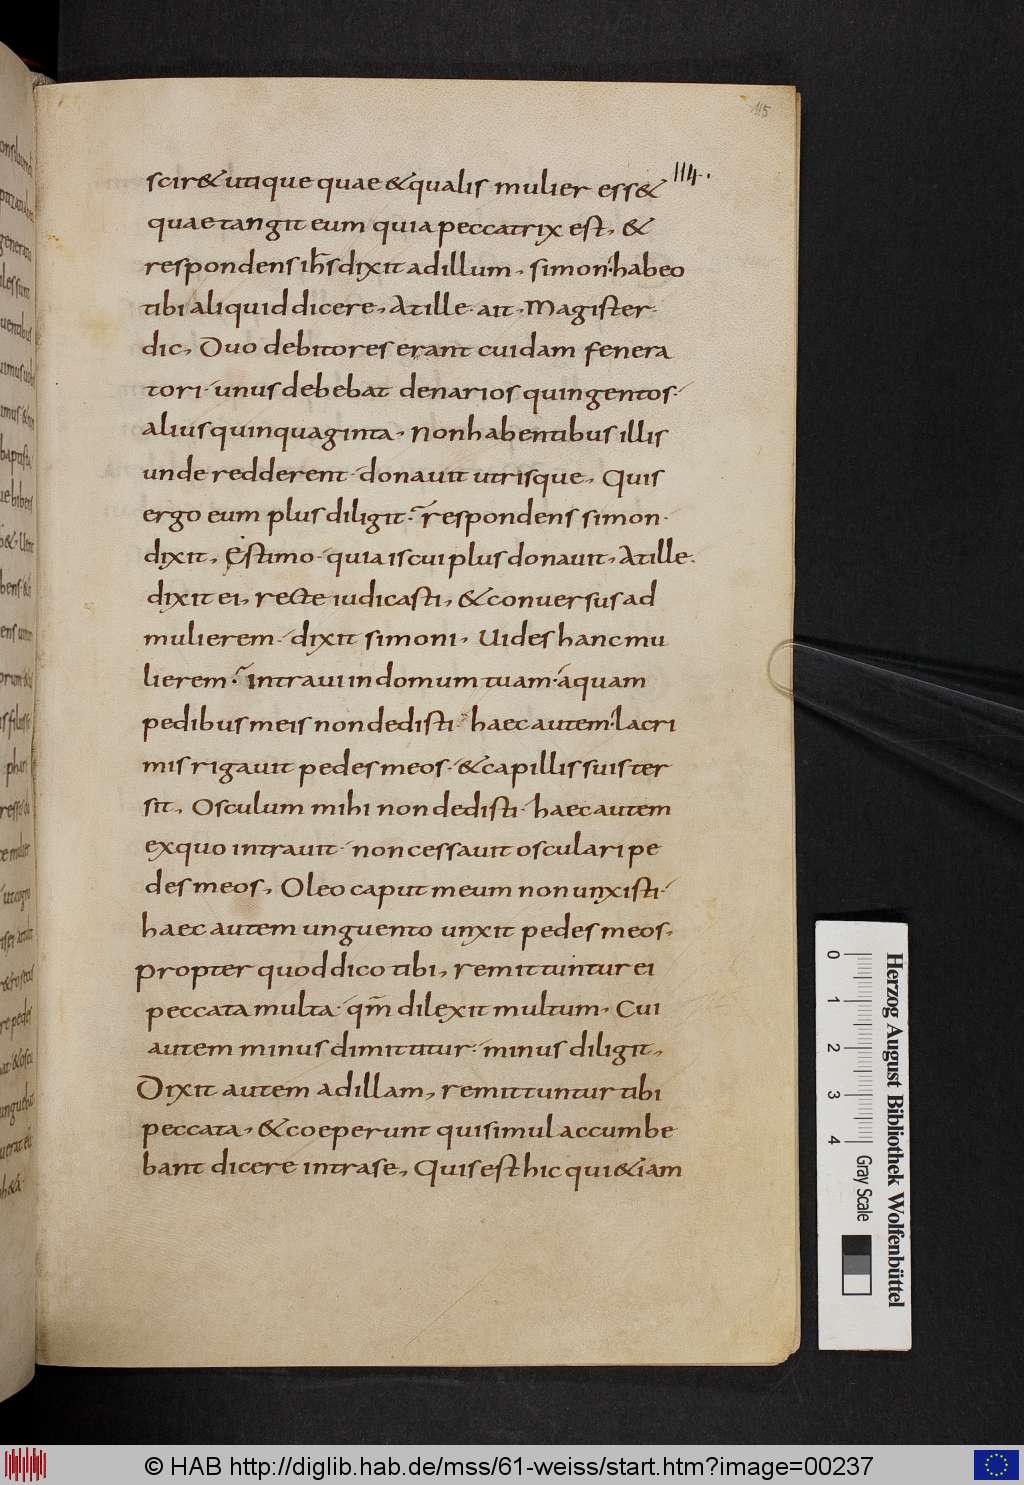 115
scir& utique quae &qualis mulier ess& 114.
quae tangit eum quia peccatrix est, &
respondens ih̅s dixit ad illum, simon habeo
tibi aliquid dicere, At ille ait, Magister
dic, Duo debitores erant cuidam fenera
tori unus debebat denarios quingentos
alius quinquaginta, Non habentibus illis
unde redderent donauit utrisque, Quis
ergo eum plus diligit? respondens simon
dixit, Ęstimo quia is cui plus donauit, At ille
dixit ei, recte iudicasti, &conuersus ad
mulierem dixit simoni, Uides hanc mu
lierem? Intraui in domum tuam aquam
pedibus meis non dedisti haec autem lacri
mis rigauit pedes meos &capillis suis ter
sit, Osculum mihi non dedisti haec autem
ex quo intrauit non cessauit osculari pe
des meos, Oleo caput meum non unxisti
haec autem unguento unxit pedes meos,
Propter quod dico tibi, remittuntur ei
peccata multa qm̅ dilexit multum, Cui
autem minus dimittitur minus diligit,
Dixit autem ad illam, remittuntur tibi
peccata, &coeperunt qui simul accumbe
bant dicere intra se, Quis est hic qui &iam
Herzog August Bibliothek Wolfenbüttel
0 1 2 3 4 Gray Scale
© HAB http://diglib.hab.de/mss/61-weiss/start.htm?image=00237